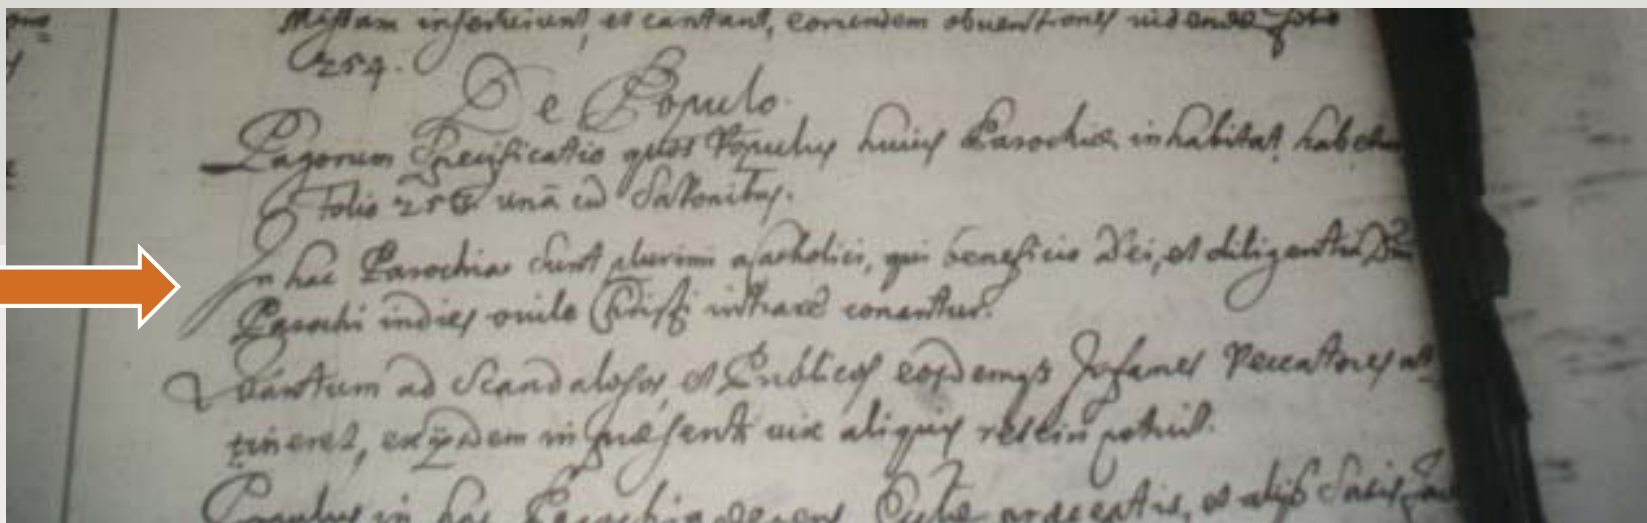 Missam inserviunt, et cantant, eorundem obventiones vidende folio
254.
De Populo.
Pagorum Specificatio quos Populus huius Parochiæ inhabitat habetur
Folio 256 unā cū Patronibus.
In hac Parochia sunt plurimi acatholici, qui beneficio Dei, et diligentia Dni
Parochi indies ovile Christi intrare conantur.
Quantum ad Scandalosos, et Publicos eosdemqs Infames Peccatores at
tineret, exijsdem in præsenti vix aliquis referiri potuit.
Populus in hac Parochia degens Cultæ præceptis, et alijs satis